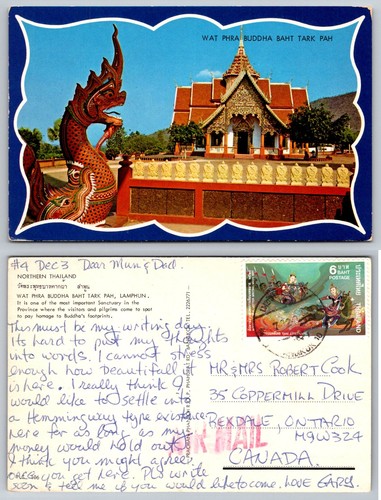 WAT PHRA BUDDHA BAHT TARK PAH
#4 Dec 3 Dear Mum & Dad.
NORTHERN THAILAND
วัดพระพุทธบาทตากผ้า ลำพูน
WAT PHRA BUDDHA BAHT TARK PAH, LAMPHUN.
It is one of the most important Sanctuary in the
Province where the visitors and pilgrims come to spot
to pay homage to Buddha's footprints.
This must be my writing day.
Its hard to put my thoughts
into words. I cannot stress
enough how beautifull it
is here. I really think I
would like to settle into
a Hemmingway type existence
here for as long as my
money would hold out.
I think you might agree,
once you get here. Pls write
& tell me if you would like to come. LOVE GARY.
6 บาท
BAHT
POSTAGE
ประเทศไทย THAILAND
MR & MRS ROBERT COOK
35 COPPERMILL DRIVE
REXDALE, ONTARIO
M9W3Z4
CANADA.
AIR MAIL